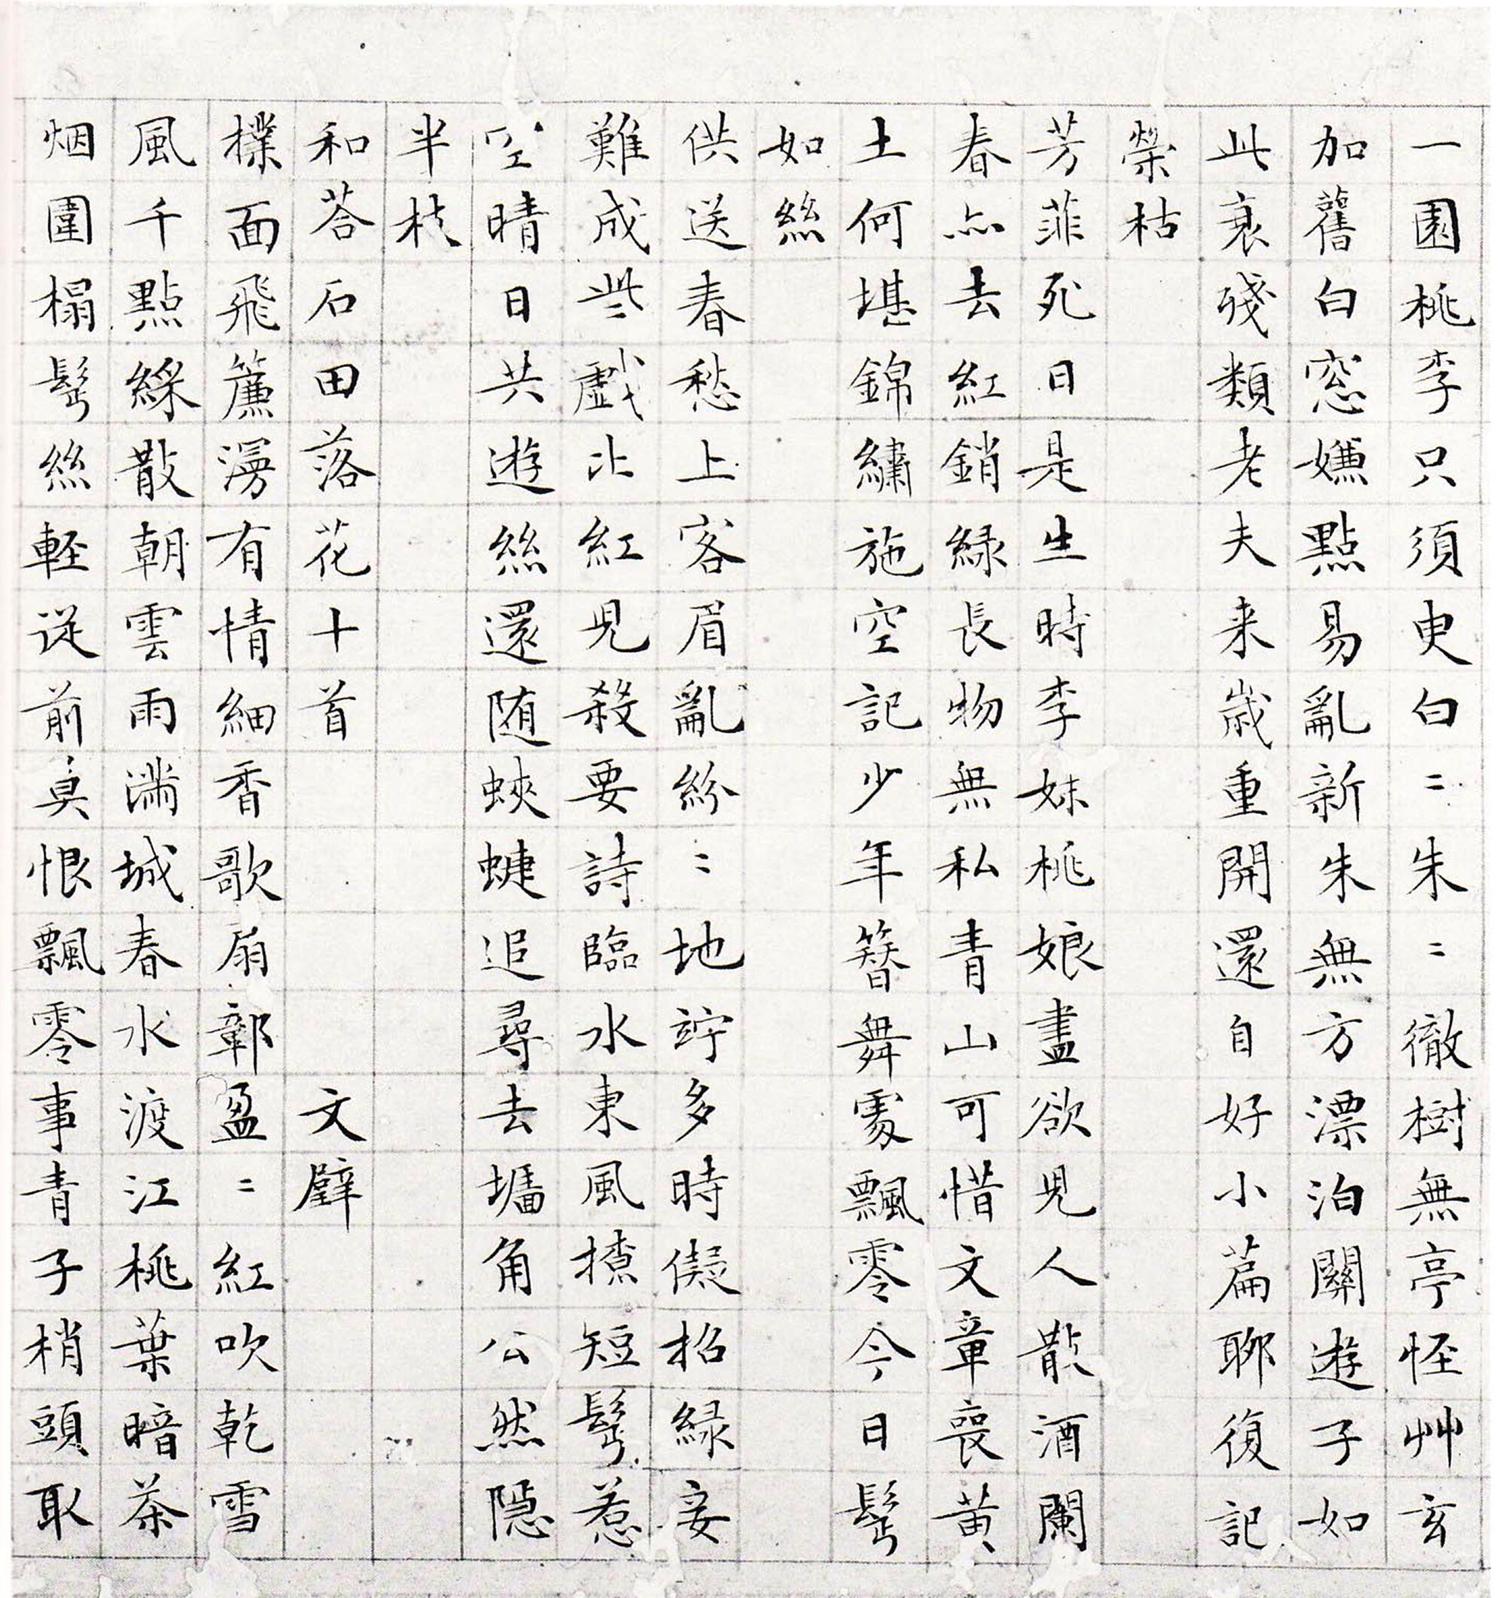 一園桃李只須臾白〻朱〻徹樹無亭怪艸玄
加舊白窓嫌點易亂新朱無方漂泊關遊子如
此衰殘類老夫来歲重開還自好小篇聊復記
榮枯
芳菲死日是生時李妹桃娘盡欲児人散酒闌
春亦去紅銷綠長物無私青山可惜文章喪黃
土何堪錦繡施空記少年簪舞處飄零今日髩
如絲
供送春愁上客眉亂紛〻地竚多時儗招綠妾
難成些戲比紅児殺要詩臨水東風撩短髩惹
空晴日共遊絲還随蛺蜨追尋去墻角公然隱
半枝
和荅石田落花十首 文壁
撲面飛簾漫有情細香歌扇鄣盈〻紅吹乾雪
風千點綵散朝雲雨滿城春水渡江桃葉暗茶
烟圍榻髩絲軽従前莫恨飄零事青子梢頭取